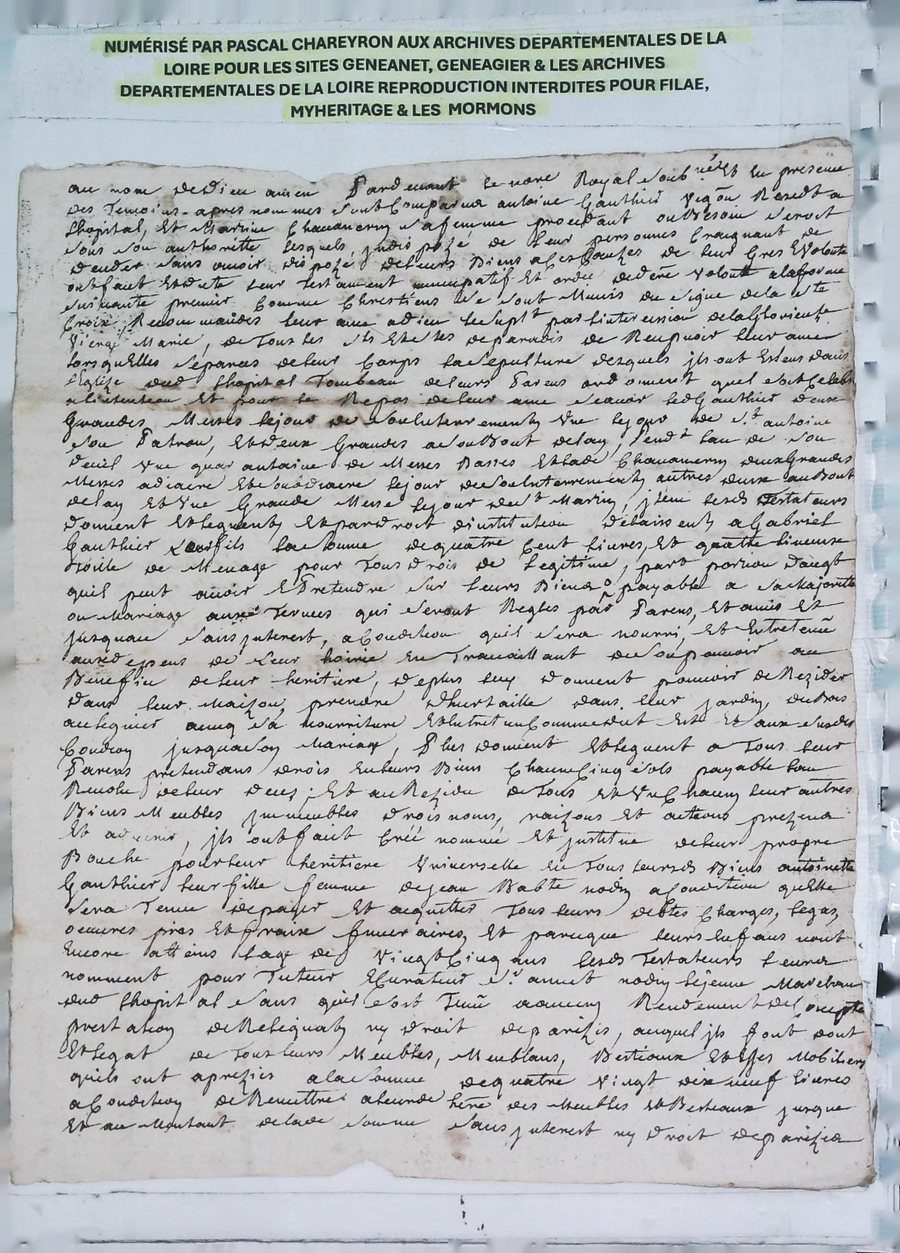 NUMÉRISÉ PAR PASCAL CHAREYRON AUX ARCHIVES DEPARTEMENTALES DE LA
LOIRE POUR LES SITES GENEANET, GENEAGIER & LES ARCHIVES
DEPARTEMENTALES DE LA LOIRE REPRODUCTION INTERDITES POUR FILAE,
MYHERITAGE & LES MORMONS
au nom de Dieu amen Pardevant le nore Royal soub.né et en presence
des Temoins apres nommes sont Comparus antoine Gauthier Vigõn Resedt a
Lhopital, Et Marine Chauanerin sa femme procedant ou Besoin seroit
sous son authoritte lesquels jndispozé de leur personnes Craignant de
deceder sans auoir dispozé de leurs Biens a Ces Cauzes de leur Gres Volonte
ont fait Et dite leur Testament nuncupatif et ordre de dere Volonte a la forme
suiuante premier Comme Chrestiens se sont Munis du signe de la ste
Croix Recommandes leur ame a dieu le supt par linterssion de la Glorieuse
Vierge Marie, de Tous les sts Et stes de paradis de Reupuoir leur ames
lorsquElles separeés de leur Corps la sepulture desquels jls ont Esleus dans
lEglize dud Lhopital Tombeau de leurs Parens ordonnent quel soit Celebre
a lintention Et pour le Repos de leur ame scauoir led Gauthier deux
Grandes Messes le jour de son Enterrement Vne le jour de st antoine
son Patron, Et deux Grandes a son Bout de lan, pendt lan de son
deuil Vne quarantaine de Messes Basses Et lade Chauanerin deux Grandes
Messes a diacre Et soubdiacre le jour de son Enterrement autres deux au Bout
de lan Et Vne Grande Messe le jour de st Martin, jtem lesds Testateurs
donnent Et leguent, Et par droit dinstitution delaissent a Gabriel
Gauthier Leur fils la somme de quatre Cent Liures, Et quatre linceuse
Toille de Menage pour Tous drois de Legitime, part portion Daugt
quil peut auoir Et Pretendre sur leurs Biens payable a sa Majorite
ou Mariage aux Termes qui seront Regles par Parens, Et amis Et
jusquau sans jnterest, a Condition quil sera nourri, Et Entretenu
aux depens de Leur hoirie En Trauaillant de son pouuoir au
Benefice de leur heritiere, de plus luy donnent pouuoir de Rezider
dans leur Maison, prendre dhertaille dans leur jardin, du Bois
au leguier auec sa nourriture Et Entretien Comme dit Est Et aux susdes
Condōn jusqua son Mariage, Plus donnent Et leguent a Tous leur
Parens pretendans drois En leurs Biens Chacun Cinq sols payable lan
Reuolu de leur deces; Et au Rezidu de Tous Et Vn Chacun leur autres
Biens Meubles jmmeubles drois noms, raizons Et actions prezens
Et aduenir, jls ont fait Creé nommée Et jnstitue de leur propre
Bouche pour leur heritiere Vniverselle En Tous leursds Biens antoinette
Gauthier leur fille femme de jean Babte nodin a Condition quElle
sera Tenue de payer Et acquitter Tous leurs debtes Charges, legaz
oeuures pies Et fraix funeraires, Et parceque leurs Enfans nont
Encore attiens lage de Vingt Cinq ans lesds Testateurs leurs
nomment pour Tuteur Et Curateur sr annet nodin le jeune Marchand
dud Lhopital sans quil soit Tenu a aucun Rendement de Compte
prestation de Reliquat, ny droit de parizis, auquel jls font dont
Et legat de Tous leurs Meubles, Meublans, Bestiaux Et Effes Mobiliers
quils ont aprezies a la somme de quatre Vingt dix neuf Liures
a Condition de Remettre a leurde here des Meubles Et Bestiaux jusque
Et au Montant de lade somme sans jnterest ny droit de parizis